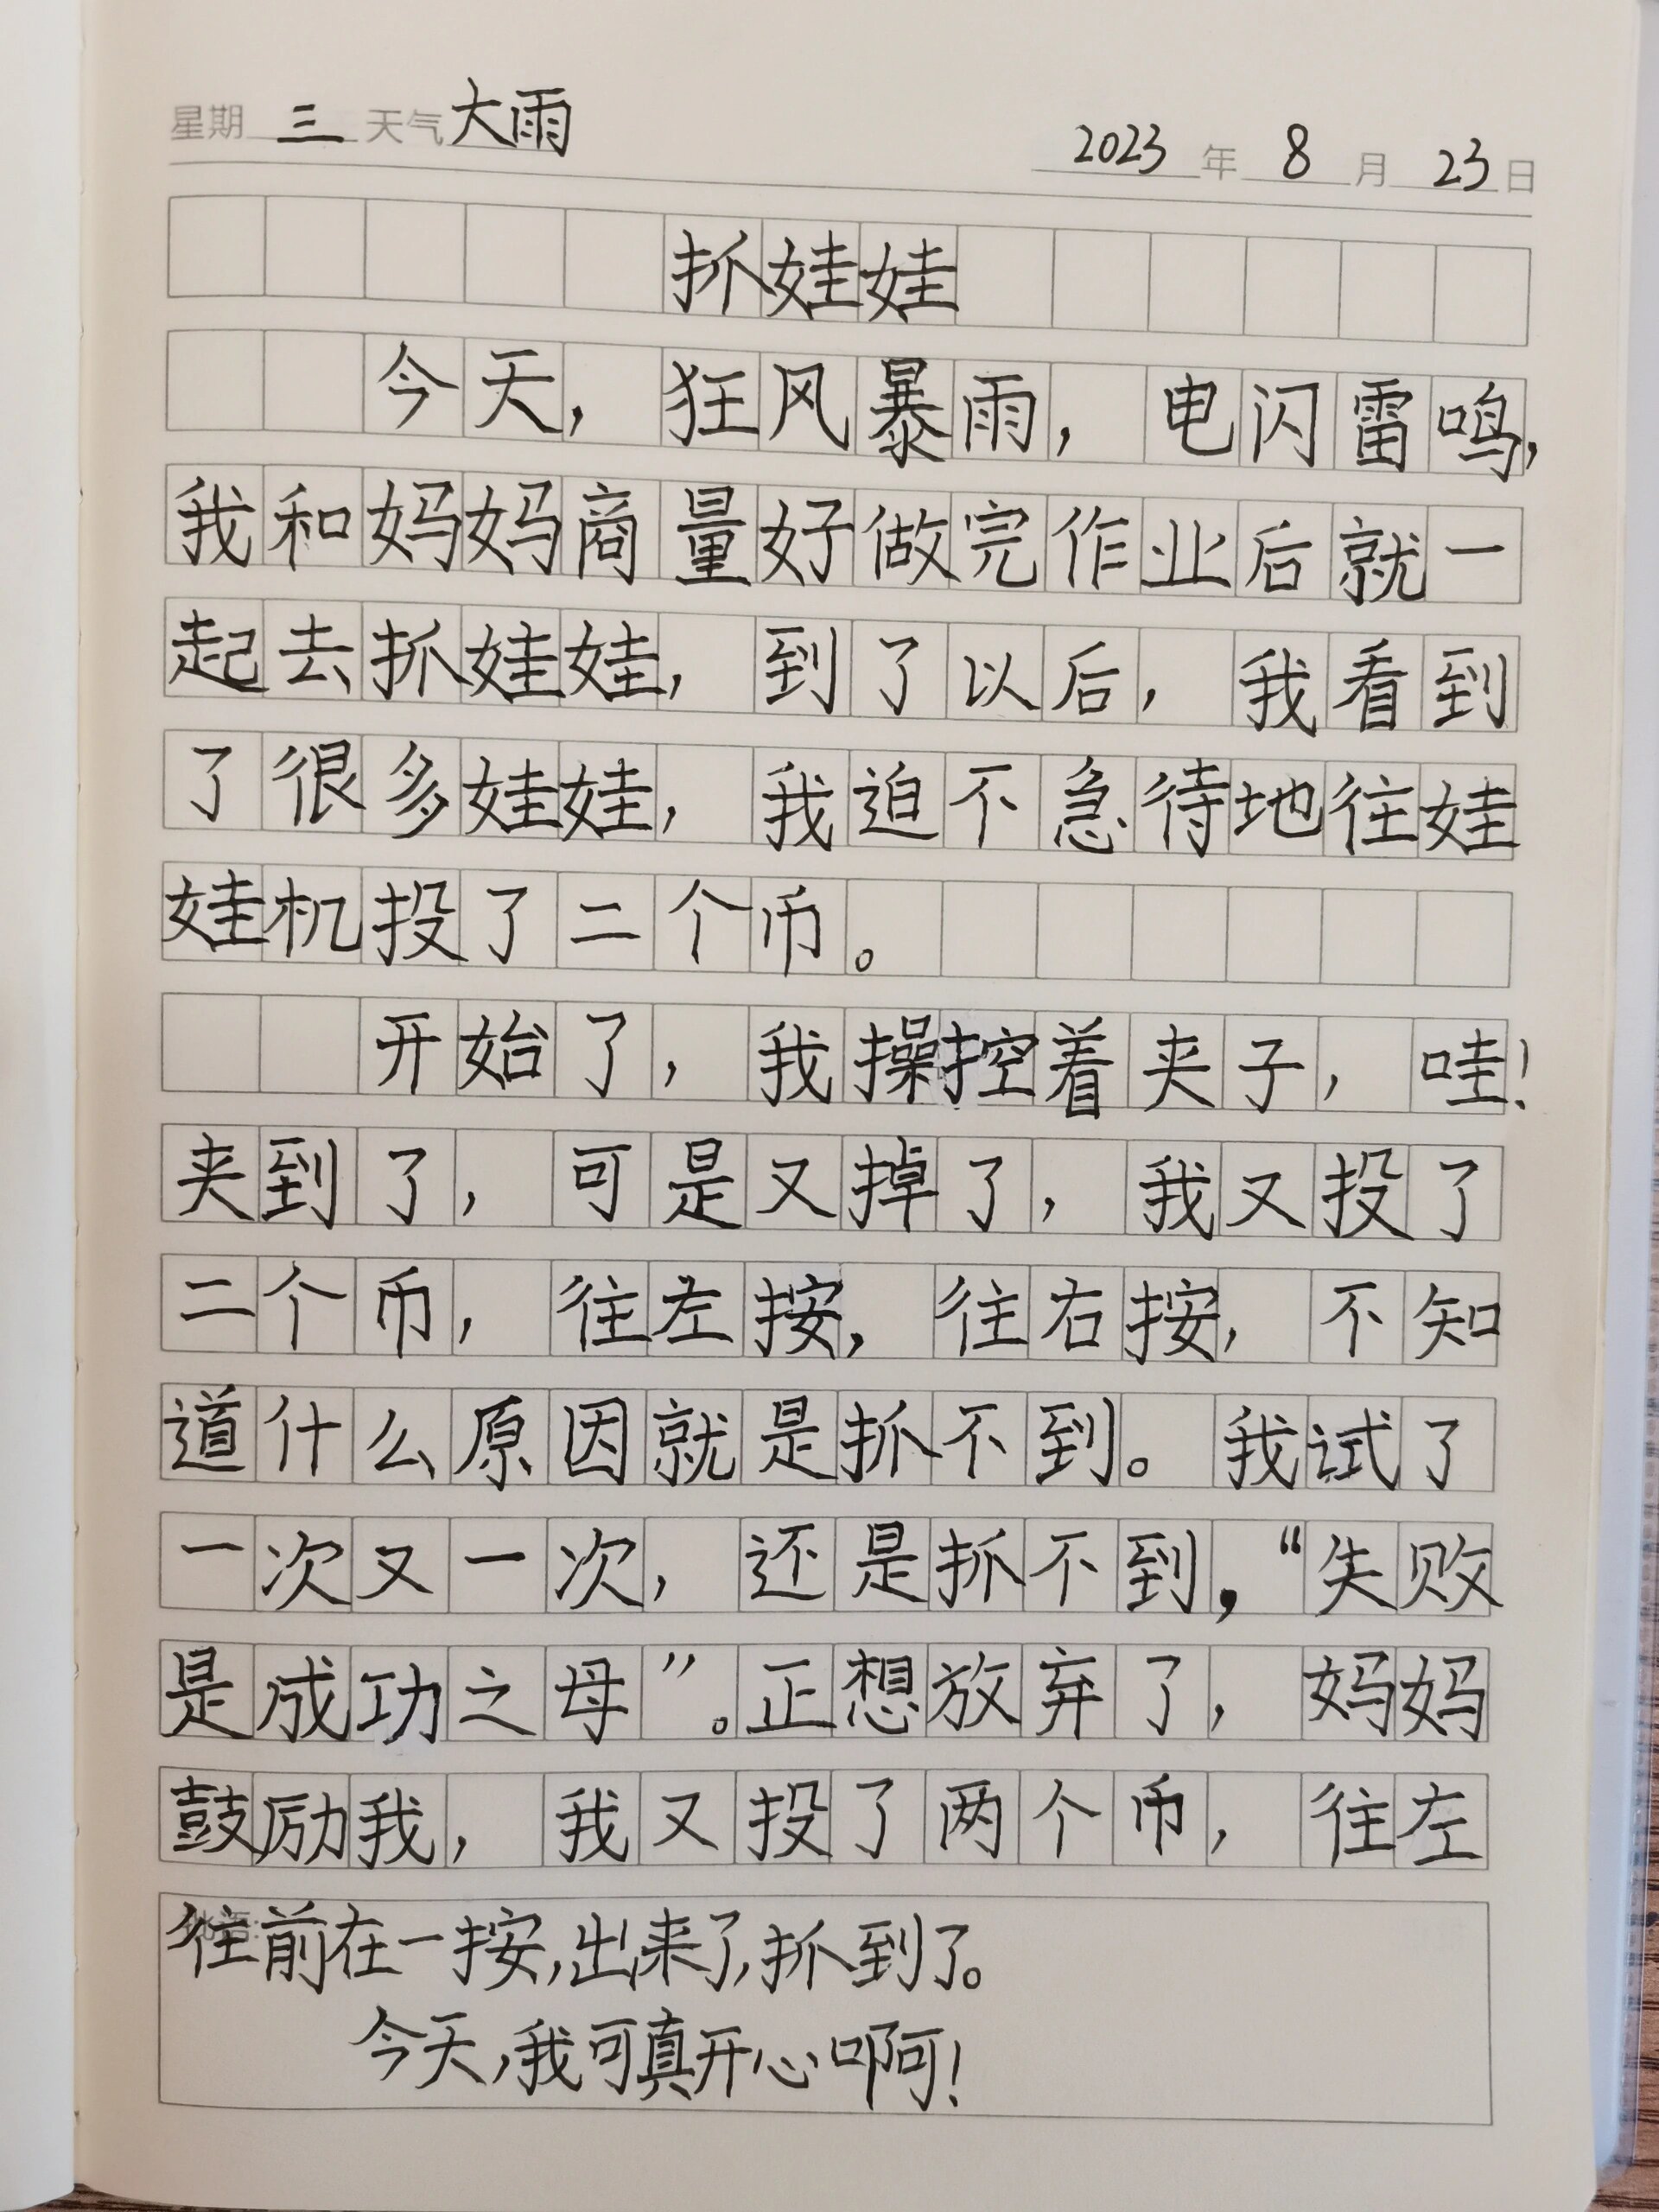 星期三 天气大雨
2023年8月23日
抓娃娃
今天，狂风暴雨，电闪雷鸣，
我和妈妈商量好做完作业后就一
起去抓娃娃，到了以后，我看到
了很多娃娃，我迫不急待地往娃
娃机投了二个币。
开始了，我操控着夹子，哇！
夹到了，可是又掉了，我又投了
二个币，往左按，往右按，不知
道什么原因就是抓不到。我试了
一次又一次，还是抓不到，“失败
是成功之母”。正想放弃了，妈妈
鼓励我，我又投了两个币，往左
往前在一按，出来了，抓到了。
今天，我可真开心啊！